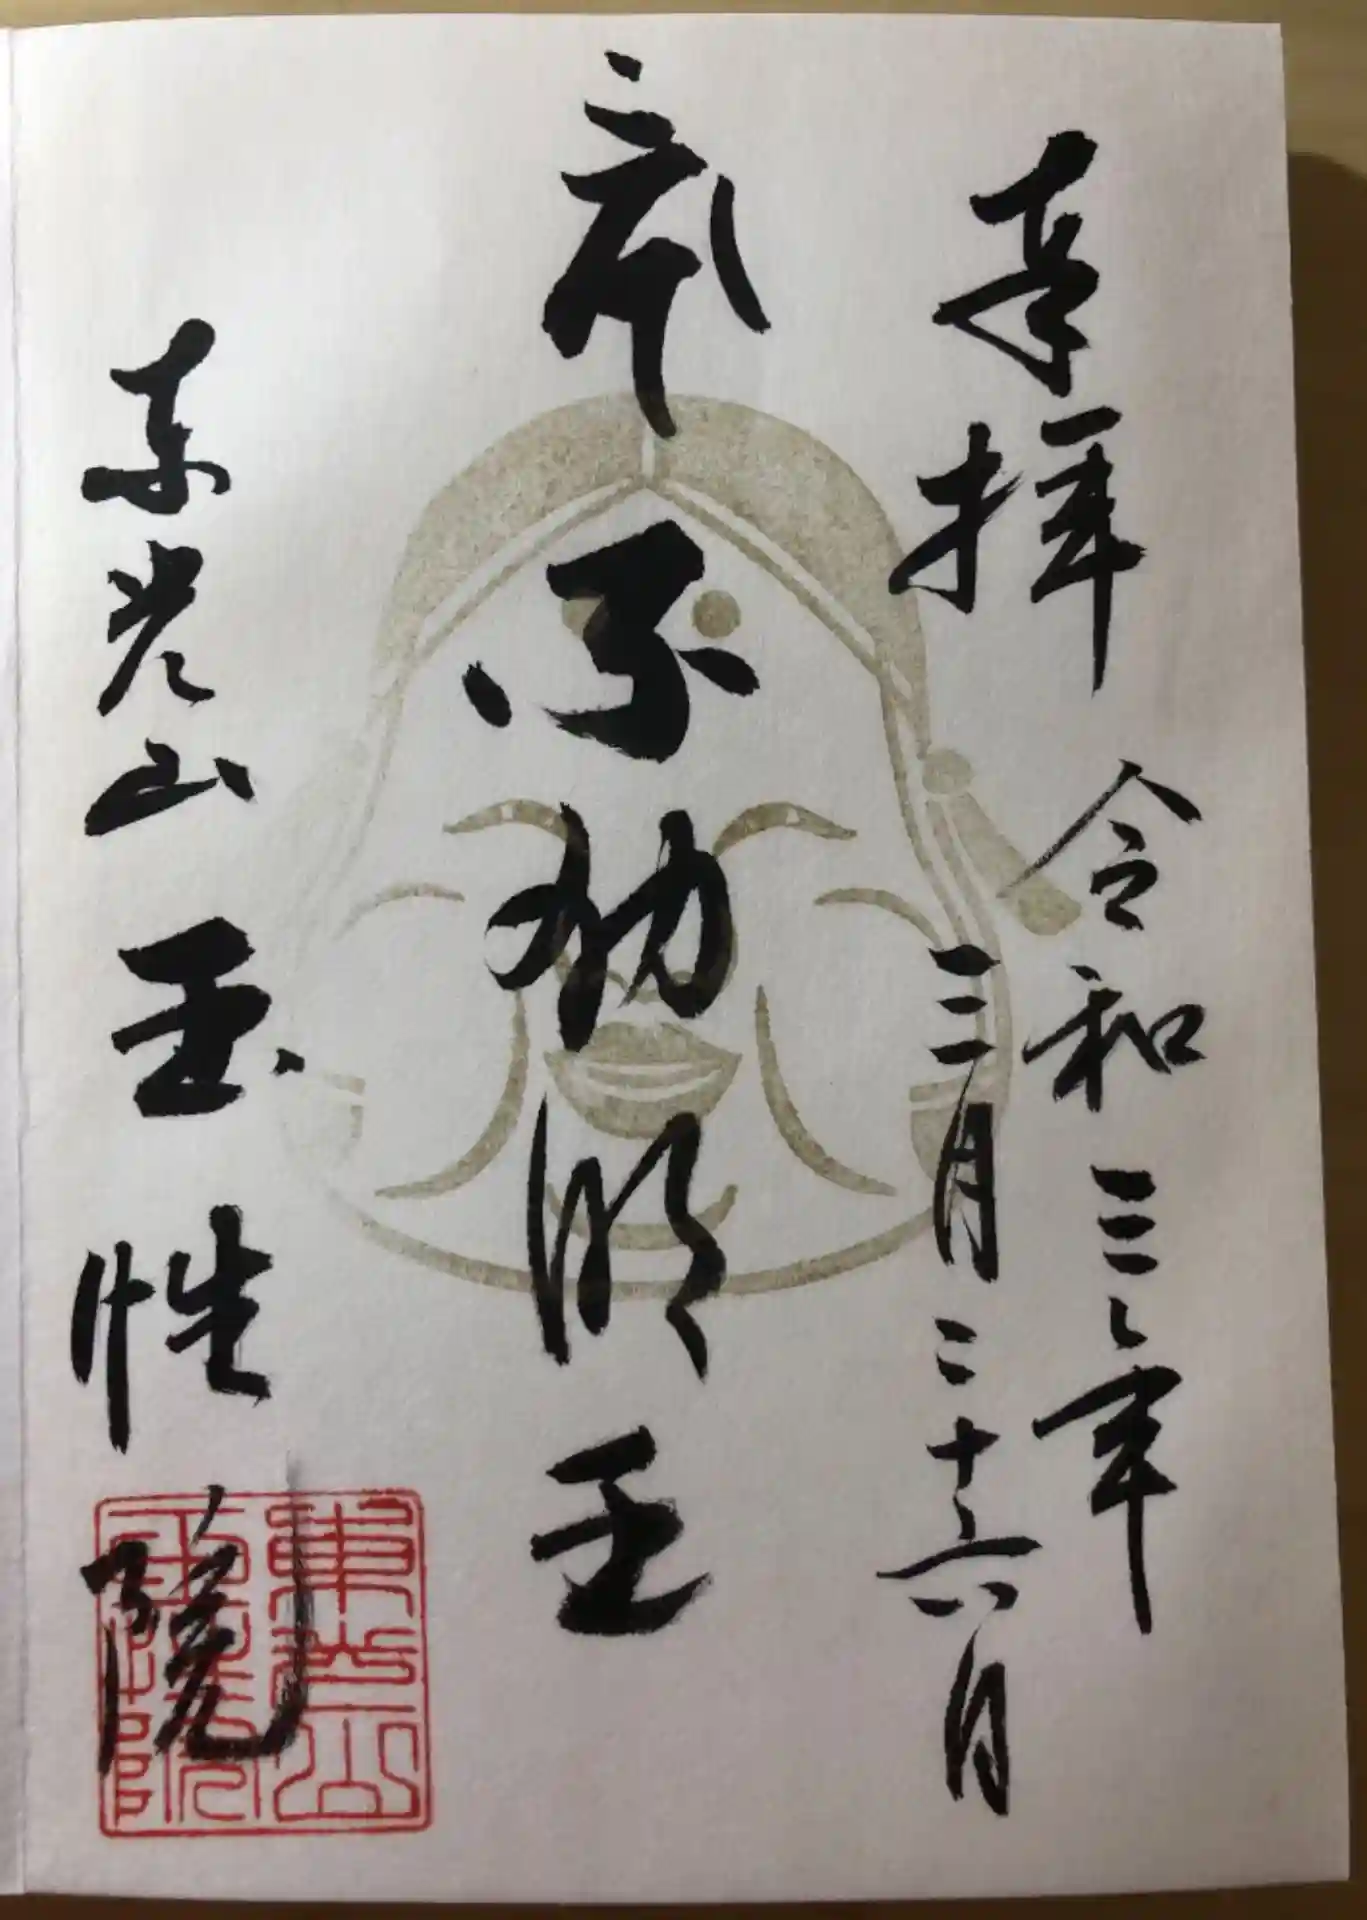 奉拝
令和三年
三月二十六日
不動明王
東光山 玉性院
東光山
玉性院